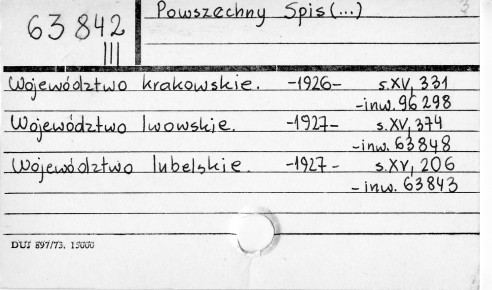 63842
III
Powszechny Spis (...)
3
Województwo krakowskie. -1926- s. XV, 331
-inw. 96 298
Województwo lwowskie. -1927- s. XV, 374
-inw. 63848
Województwo lubelskie. -1927- s. XV, 206
-inw. 63843
DUJ 897/73. 15000